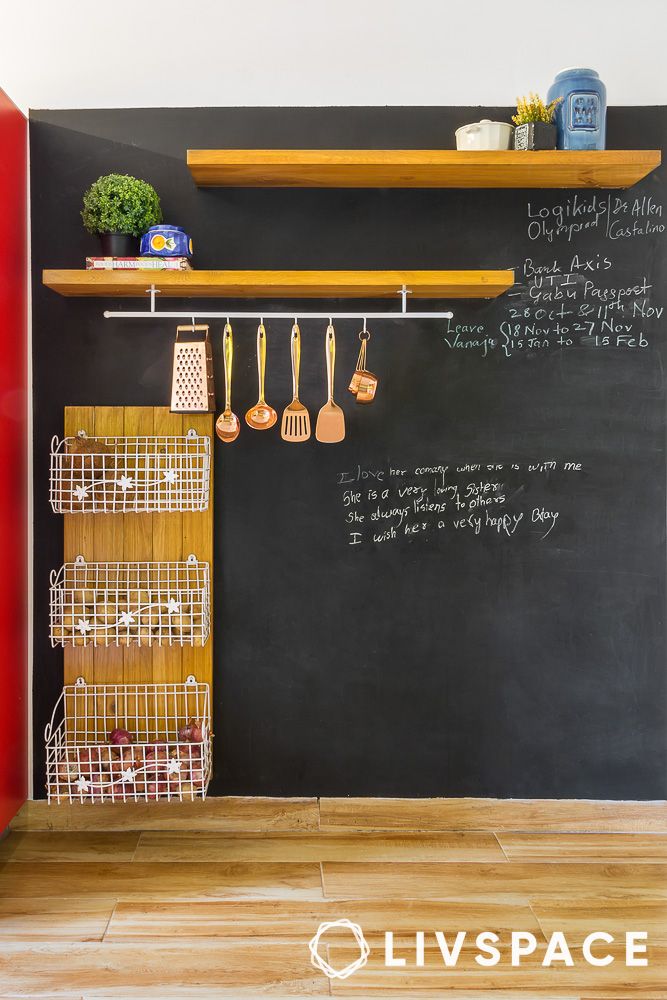 Logikids | Dr Allen
Olympiad | Castalino
- Bank Axis
UTI
- Gabu Passport
28 Oct & 11th Nov
Leave { 18 Nov to 27 Nov
Vanaja { 15 Jan to 15 Feb
I love her comany when she is with me
She is a very loving sister
She always listens to others
I wish her a very happy Bday
LIVSPACE